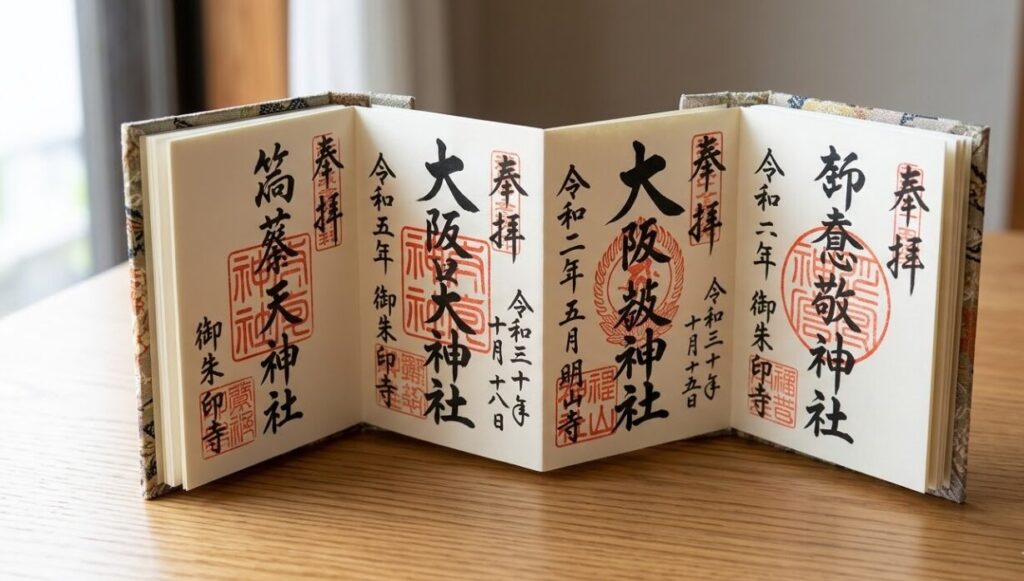 奉拝
敬神社
令和六年 御朱印寺
奉拝
令和三十年
十月十五日
大阪神社
令和二年五月明山寺
奉拝
令和三十年
十月十八日
大阪大神社
令和五年 御朱印寺
奉拝
天神社
御朱印寺